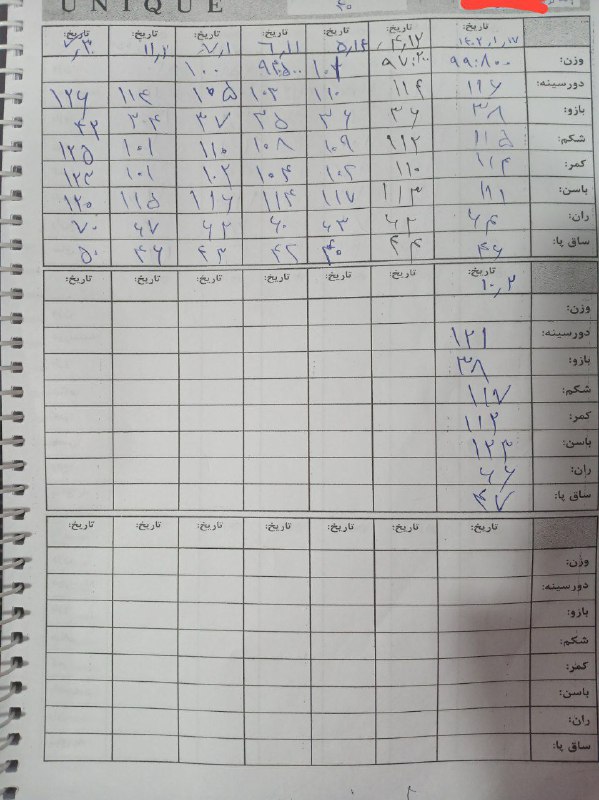 UNIQUE
۴۰
تاریخ: ۱۴۰۲٫۱٫۱۷ تاریخ: ۴٫۱۲ تاریخ: ۵٫۱۴ تاریخ: ۶٫۱۱ تاریخ: ۷٫۱ تاریخ: ۱۱٫۲ تاریخ:
وزن: ۹۹:۸۰۰ ۹۷:۲۰۰ ۱۰۰
دورسینه: ۱۱۶ ۱۱۴ ۱۱۰ ۱۰۳ ۱۰۵ ۱۱۴ ۱۲۶
بازو: ۳۸ ۳۶ ۳۶ ۳۵ ۳۷ ۳۰۴ ۴۳
شکم: ۱۱۵ ۹۱۲ ۱۰۹ ۱۰۸ ۱۱۰ ۱۰۱ ۱۲۵
کمر: ۱۱۴ ۱۱۰ ۱۰۲ ۱۰۴ ۱۰۲ ۱۰۱ ۱۲۳
باسن: ۱۱۳ ۱۱۷ ۱۱۴ ۱۱۶ ۱۱۵ ۱۲۰
ران: ۶۴ ۶۲ ۶۳ ۶۰ ۶۲ ۶۷ ۷۰
ساق پا: ۴۶ ۴۴ ۴۰ ۴۲ ۴۳ ۴۶ ۵۰
تاریخ: ۱۰٫۲ تاریخ: تاریخ: تاریخ: تاریخ: تاریخ: تاریخ:
وزن:
دورسینه: ۱۲۱
بازو: ۳۸
شکم: ۱۱۷
کمر: ۱۱۲
باسن: ۱۲۳
ران: ۶۶
ساق پا: ۴۷
تاریخ: تاریخ: تاریخ: تاریخ: تاریخ: تاریخ: تاریخ:
وزن:
دورسینه:
بازو:
شکم:
کمر:
باسن:
ران:
ساق پا: